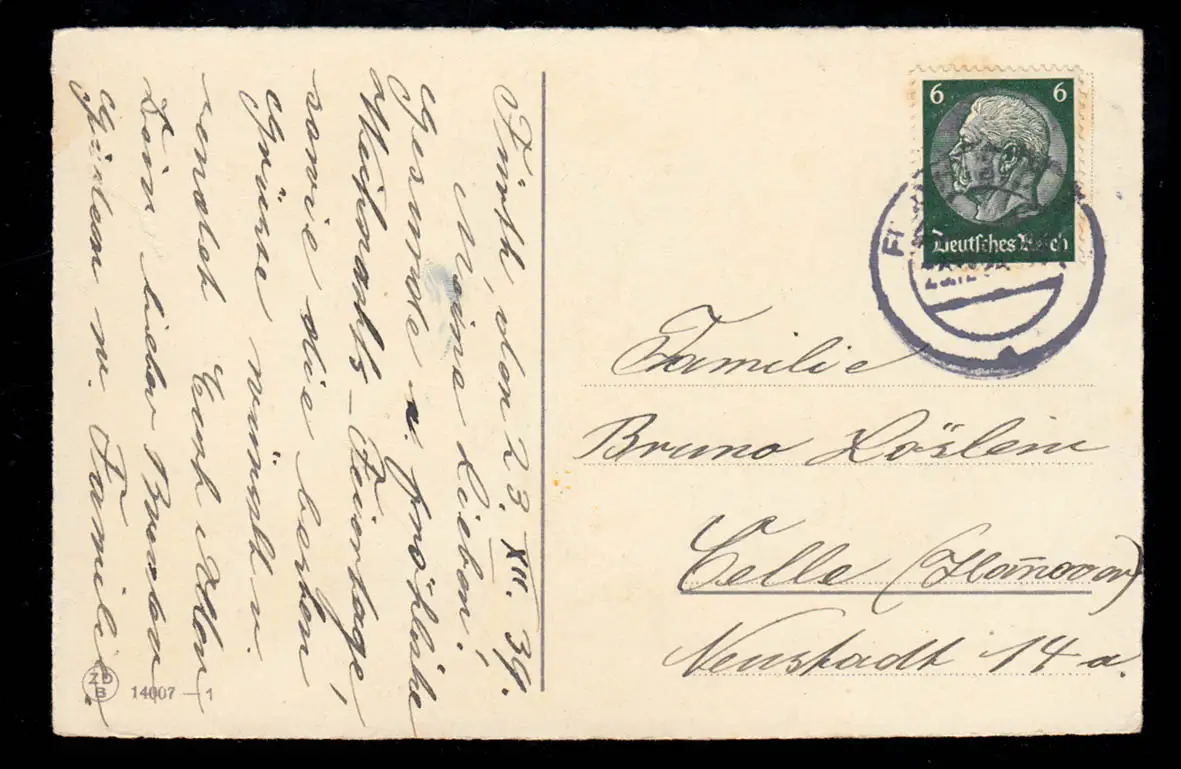 Fürth, den 23. XII. 39.
Meine Lieben!
Gesunde u. fröhliche
Weihnachts-Feiertage,
sowie die besten
Grüsse wünscht u.
sendet Euch Allen
Dein lieber Bruder
u. Familie.
6 6
Deutsches Reich
Familie
Bruno Röslein
Celle (Hañover)
Neustadt 14 a.
ZD
B
14007 — 1